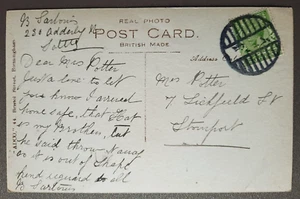 230 Adderley Rd
REAL PHOTO
POST CARD.
BRITISH MADE.
Address
Dear Mrs Potter
Just a line to let
you know I arrived
home safe, that Hat
is my Brothers, but
he said throw it away
as it is out of Shape
kind regards to all
Mrs Potter
7 Lichfield St
Stourport